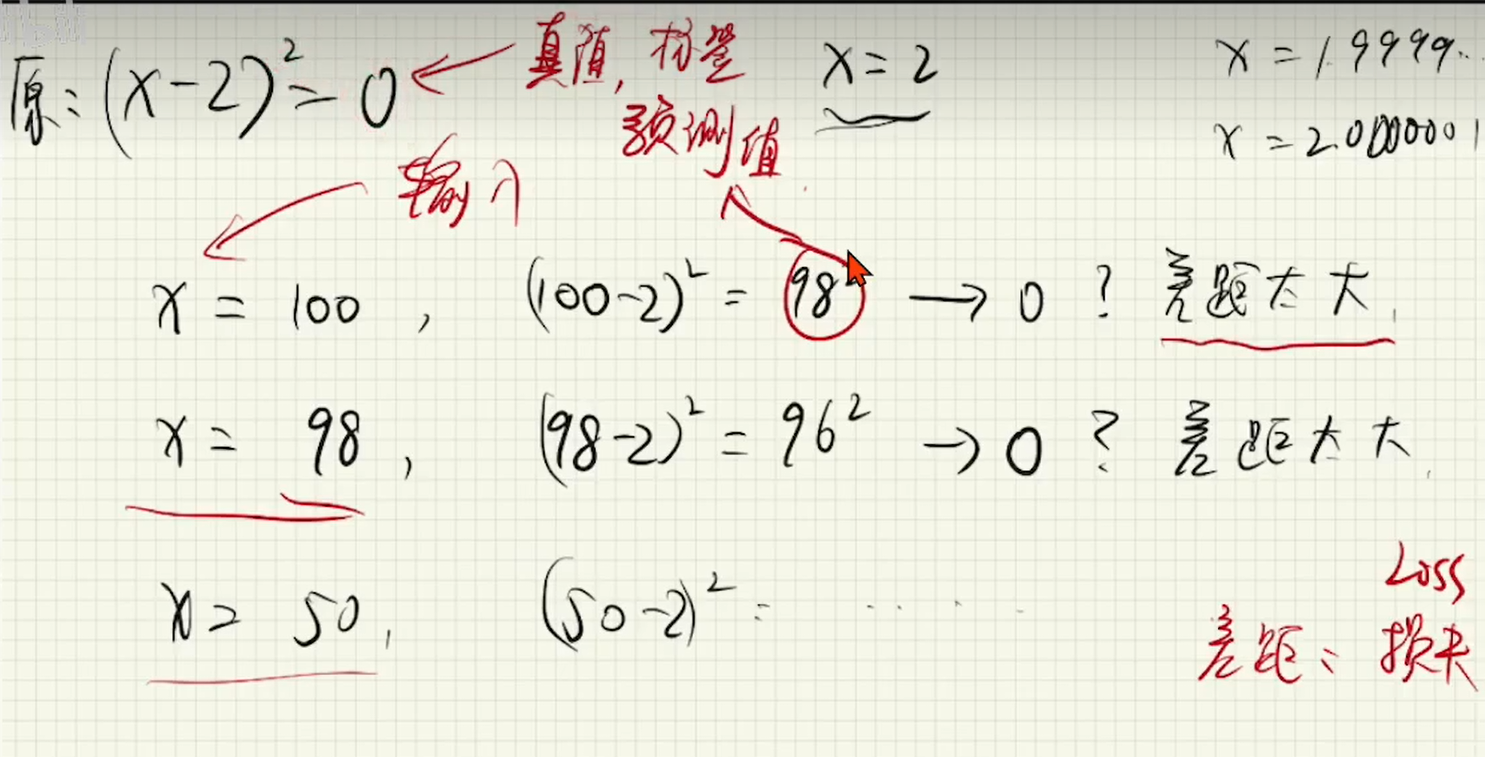 原: (x-2)² = 0 真值, 标签 x = 2 x = 1.9999..
预测值 x = 2.0000001
输入
x = 100, (100-2)² = 98² → 0 ? 差距太大.
x = 98, (98-2)² = 96² → 0 ? 差距太大.
x = 50, (50-2)² = ....
Loss
差距: 损失